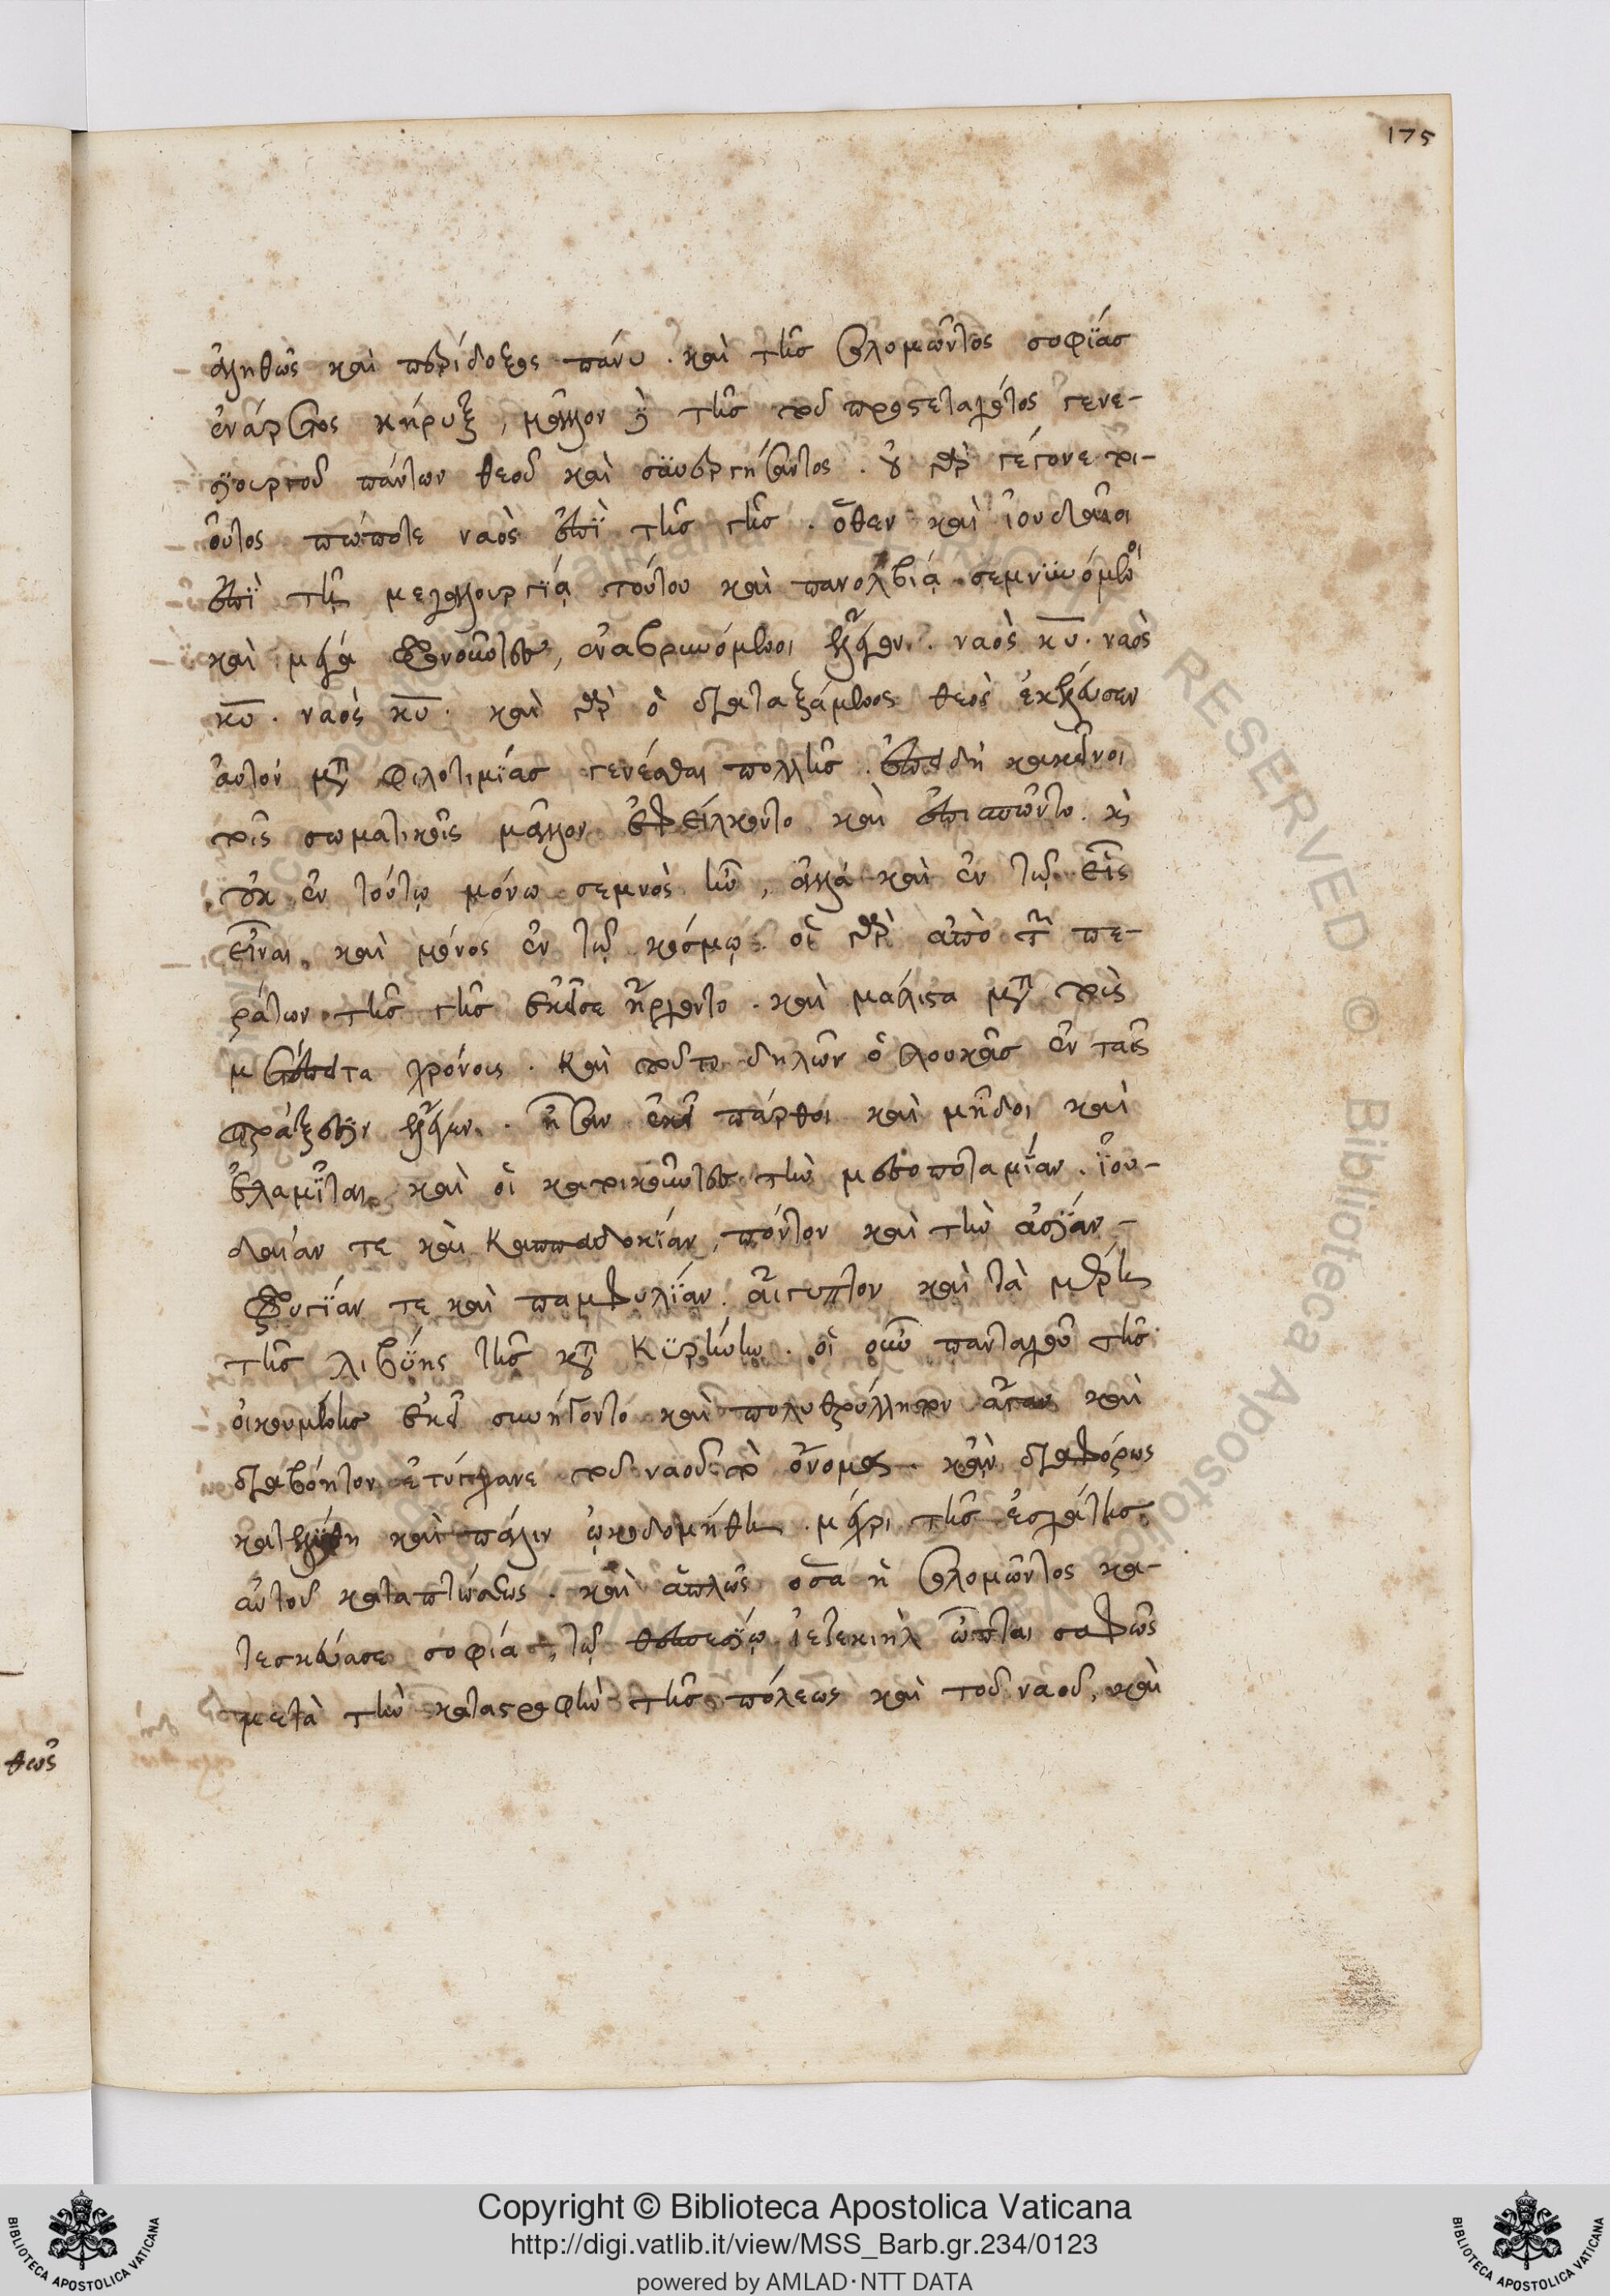 175
ἀληθῶς καὶ περίδοξος πάνυ. καὶ τῆς σολομῶντος σοφΐας
ἐνάργος κήρυξ, μᾶλλον δὲ τῆς τοῦ προστεταχότος γενε-
σϊουργοῦ πάντων θεοῦ καὶ συνεργήσαντος. οὐ γὰρ γέγονε τοι-
οῦτος πώποτε ναὸς ἐπὶ τῆς γῆς. ὅθεν καὶ ἰουδαῖοι
ἐπὶ τῇ μεγαλουργΐᾳ τούτου καὶ πανολβίᾳ σεμνϋνόμενοι
καὶ μέγα φρονοῦντες, ἐναβρυνόμενοι ἔλεγον. ναὸς κυ. ναὸς
κυ. ναὸς κυ. καὶ γὰρ ὁ διαταξάμενος θεὸς ἐκέλευσεν
αὐτὸν μετὰ φιλοτιμΐας γενέσθαι πολλῆς. ἐπειδὴ κακεῖνοι
τοῖς σωματικοῖς μᾶλλον ἐφείλκοντο καὶ ἐπεσπῶντο. καὶ
οὐκ ἐν τούτῳ μόνω σεμνὸς ἦν, ἀλλὰ καὶ ἐν τῷ εἷς
εἶναι καὶ μόνος ἐν τῷ κόσμῳ. οἱ γὰρ ἀπὸ τῶν πε-
ράτων τῆς γῆς ἐκεῖσε ἤρχοντο. καὶ μάλιστα μετὰ τοὺς
μετέπειτα χρόνοις. Καὶ τοῦτο δηλῶν ὁ λουκᾶς ἐν ταῖς
πράξεσϊν ἔλεγεν. ἦσαν ἐκεῖ πάρθοι καὶ μῆδοι καὶ
ἐλαμῖται, καὶ οἱ κατοικοῦντες τὴν μεσοποταμΐαν. ἰου-
δαίαν τε καὶ Καππαδοκΐαν, πόντον καὶ τὴν ἀσΐαν
φρυγΐαν τε καὶ παμφυλΐαν. αἴγυπτον καὶ τὰ μέρη
τῆς λιβύης τῆς κατὰ Κυρήνην. οἱ οὖν πανταχοῦ τῆς
οἰκουμένης ἐκεῖ συνήγοντο καὶ πολυθρύλλητον ἄγαν καὶ
διαβόητον ἐτύγχανε τοῦ ναοῦ τὸ ὄνομα. κἂν διαφόρως
κατελύθη καὶ πάλιν ᾠκοδομήθη. μέχρι τῆς ἐσχάτης
αὐτοῦ καταπτώσεως. καὶ ἁπλῶς ὅσα ἡ σολομῶντος κα-
τεσκεύασε σοφία, τῷ θεσπεσΐῳ ἰεζεκιὴλ ὦπται σαφῶς
μετὰ τὴν καταστροφὴν τῆς πόλεως καὶ τοῦ ναοῦ, καὶ
θῶς
Copyright © Biblioteca Apostolica Vaticana
http://digi.vatlib.it/view/MSS_Barb.gr.234/0123
powered by AMLAD·NTT DATA
BIBLIOTECA APOSTOLICA VATICANA
BIBLIOTECA APOSTOLICA VATICANA